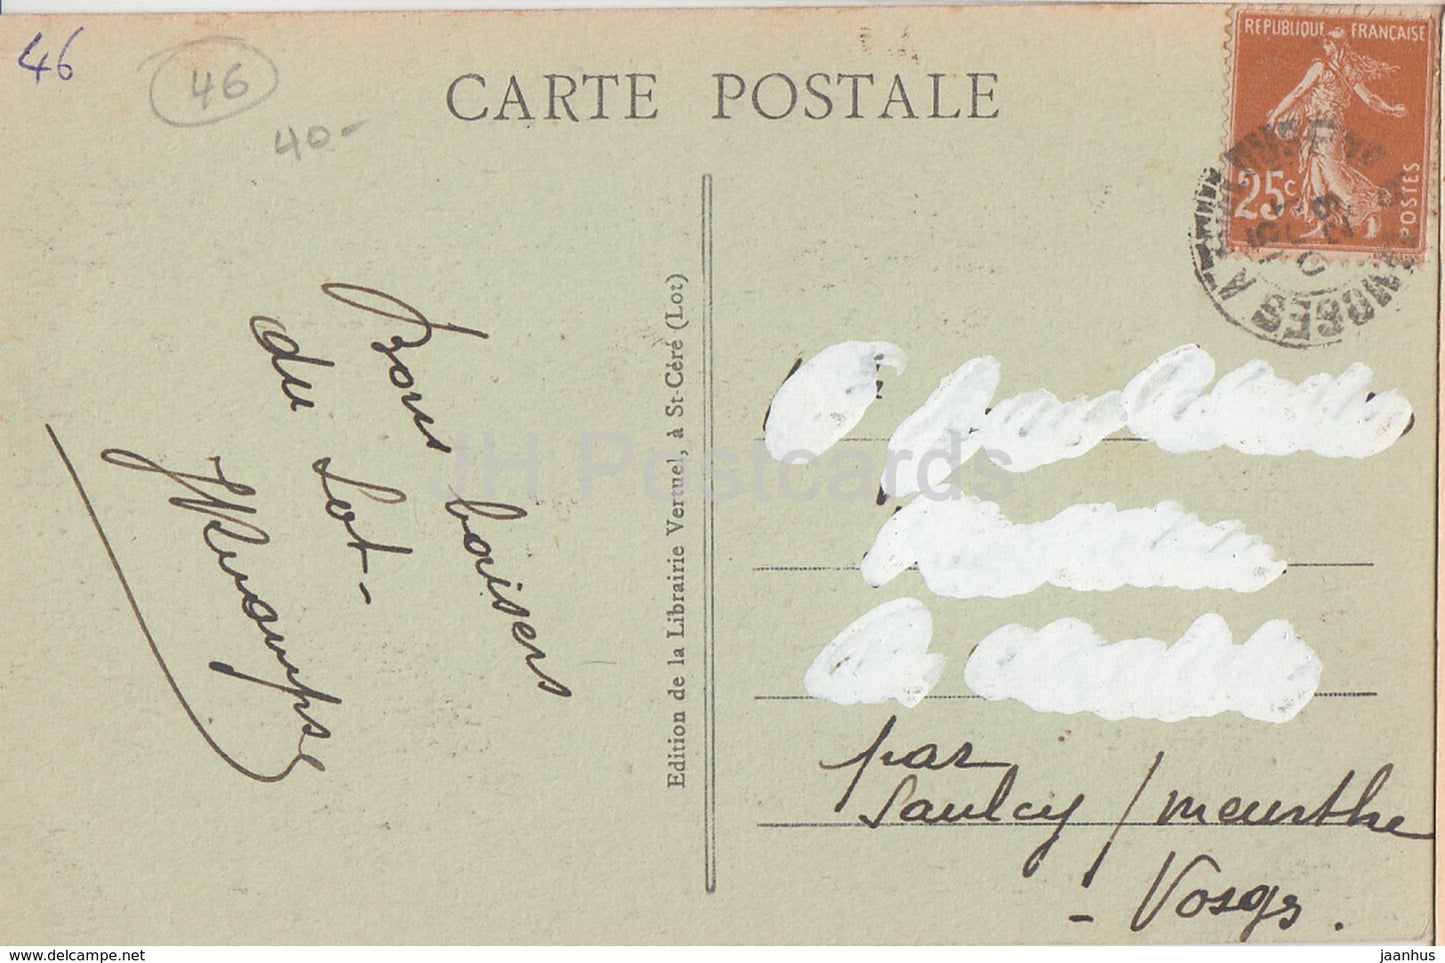 46
46
40-
CARTE POSTALE
REPUBLIQUE FRANÇAISE
25c
POSTES
Bons baisers
du Lot-
Edition de la Librairie Vertuel, à St-Céré (Lot)
JH Postcards
par
Saulcy / meurthe
- Vosges.
delcampe.net
jaanhus